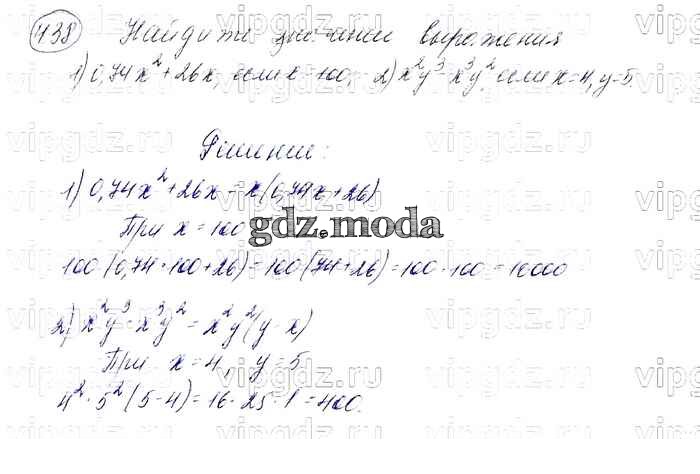 438 Найдите значение выражения
1) 0,74x² + 26x, если x = 100; 2) x²y³ - x³y², если x = 4, y = 5.
Решение:
1) 0,74x² + 26x = x(0,74x + 26)
При x = 100
gdz.moda
100(0,74 · 100 + 26) = 100(74 + 26) = 100 · 100 = 10000
2) x²y³ - x³y² = x²y²(y - x)
При x = 4, y = 5
4² · 5²(5 - 4) = 16 · 25 · 1 = 400.
vipgdz.ru